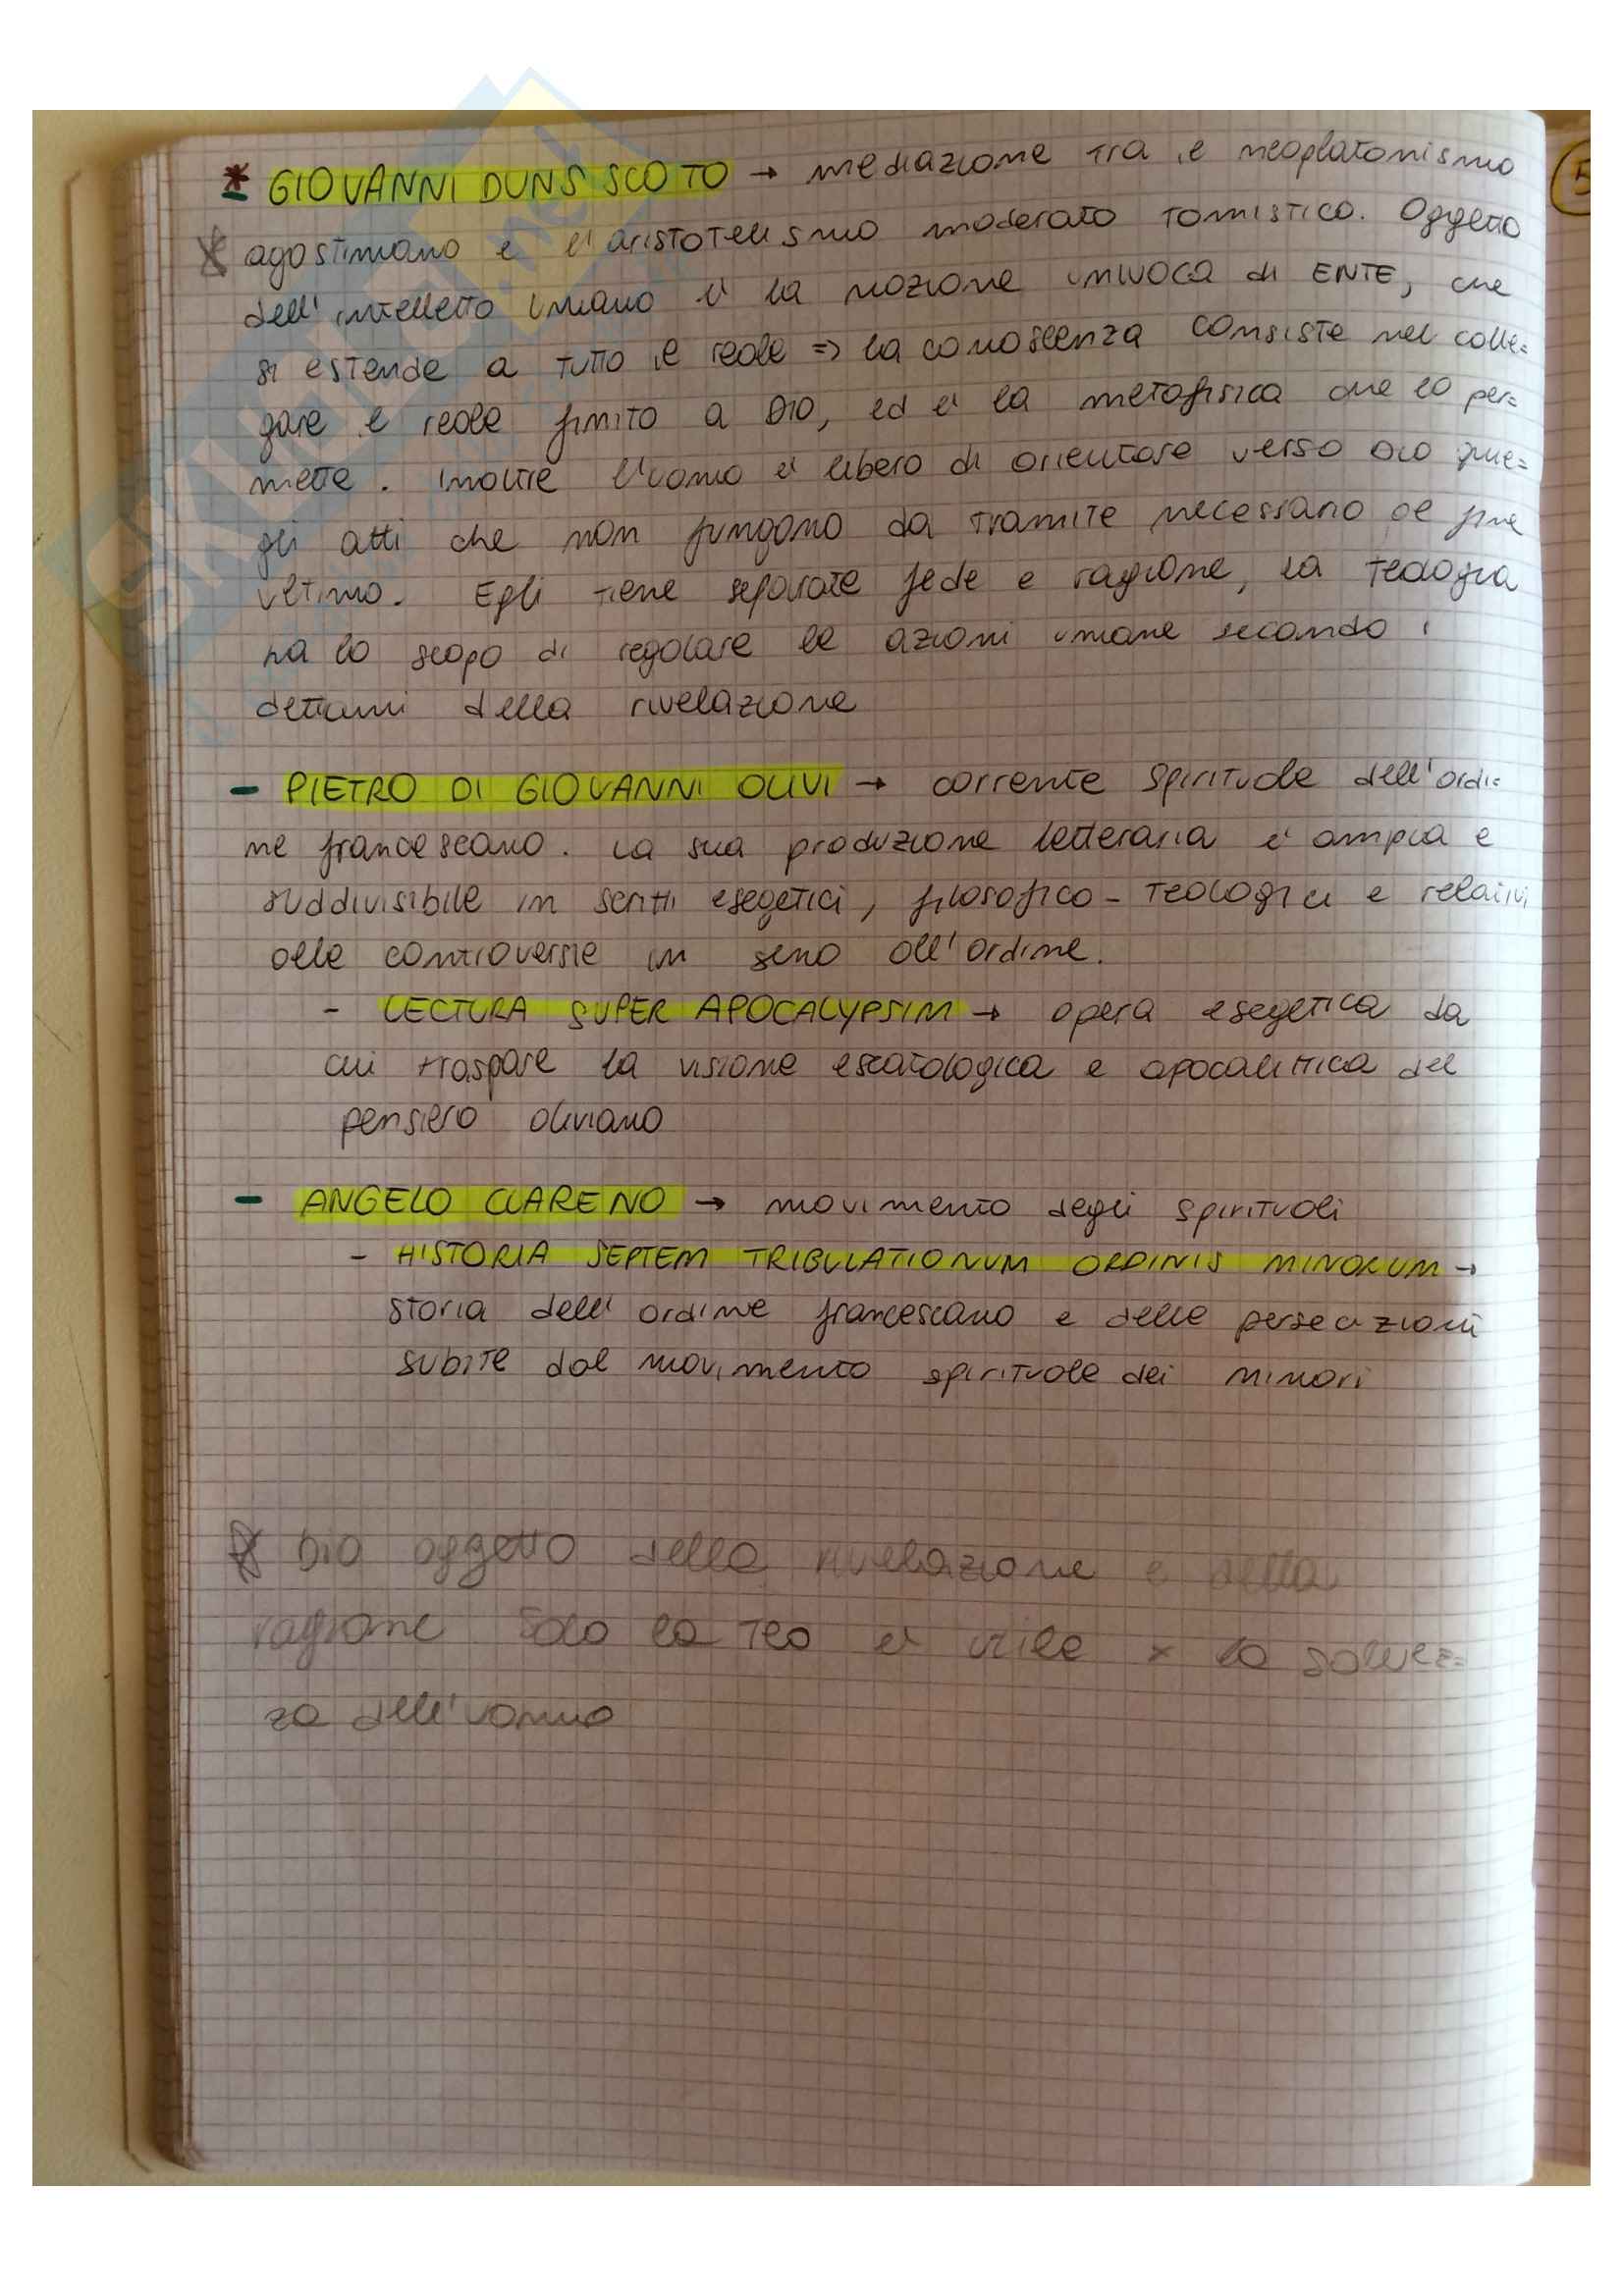 * GIOVANNI DUNS SCOTO → mediazione tra il neoplatonismo
agostiniano e l'aristotelismo moderato tomistico. Oggetto
dell'intelletto umano è la nozione univoca di ENTE, che
si estende a tutto il reale => la conoscenza consiste nel colle=
gare il reale finito a DIO, ed è la metafisica che lo per=
mette. Inoltre l'uomo è libero di orientare verso DIO que=
gli atti che non fungono da tramite necessario al fine
ultimo. Egli tiene separate fede e ragione, la teologia
ha lo scopo di regolare le azioni umane secondo i
dettami della rivelazione
- PIETRO DI GIOVANNI OLIVI → corrente spirituale dell'ordi=
ne francescano. La sua produzione letteraria è ampia e
suddivisibile in scritti esegetici, filosofico-teologici e relativi
alle controversie in seno all'ordine.
- LECTURA SUPER APOCALYPSIM → opera esegetica da
cui traspare la visione escatologica e apocalittica del
pensiero oliviano
- ANGELO CLARENO → movimento degli spirituali
- HISTORIA SEPTEM TRIBULATIONUM ORDINIS MINORUM →
storia dell'ordine francescano e delle persecuzioni
subite dal movimento spirituale dei minori
* Dio oggetto della rivelazione e della
ragione solo la Teo è utile x la salvez=
za dell'uomo
5